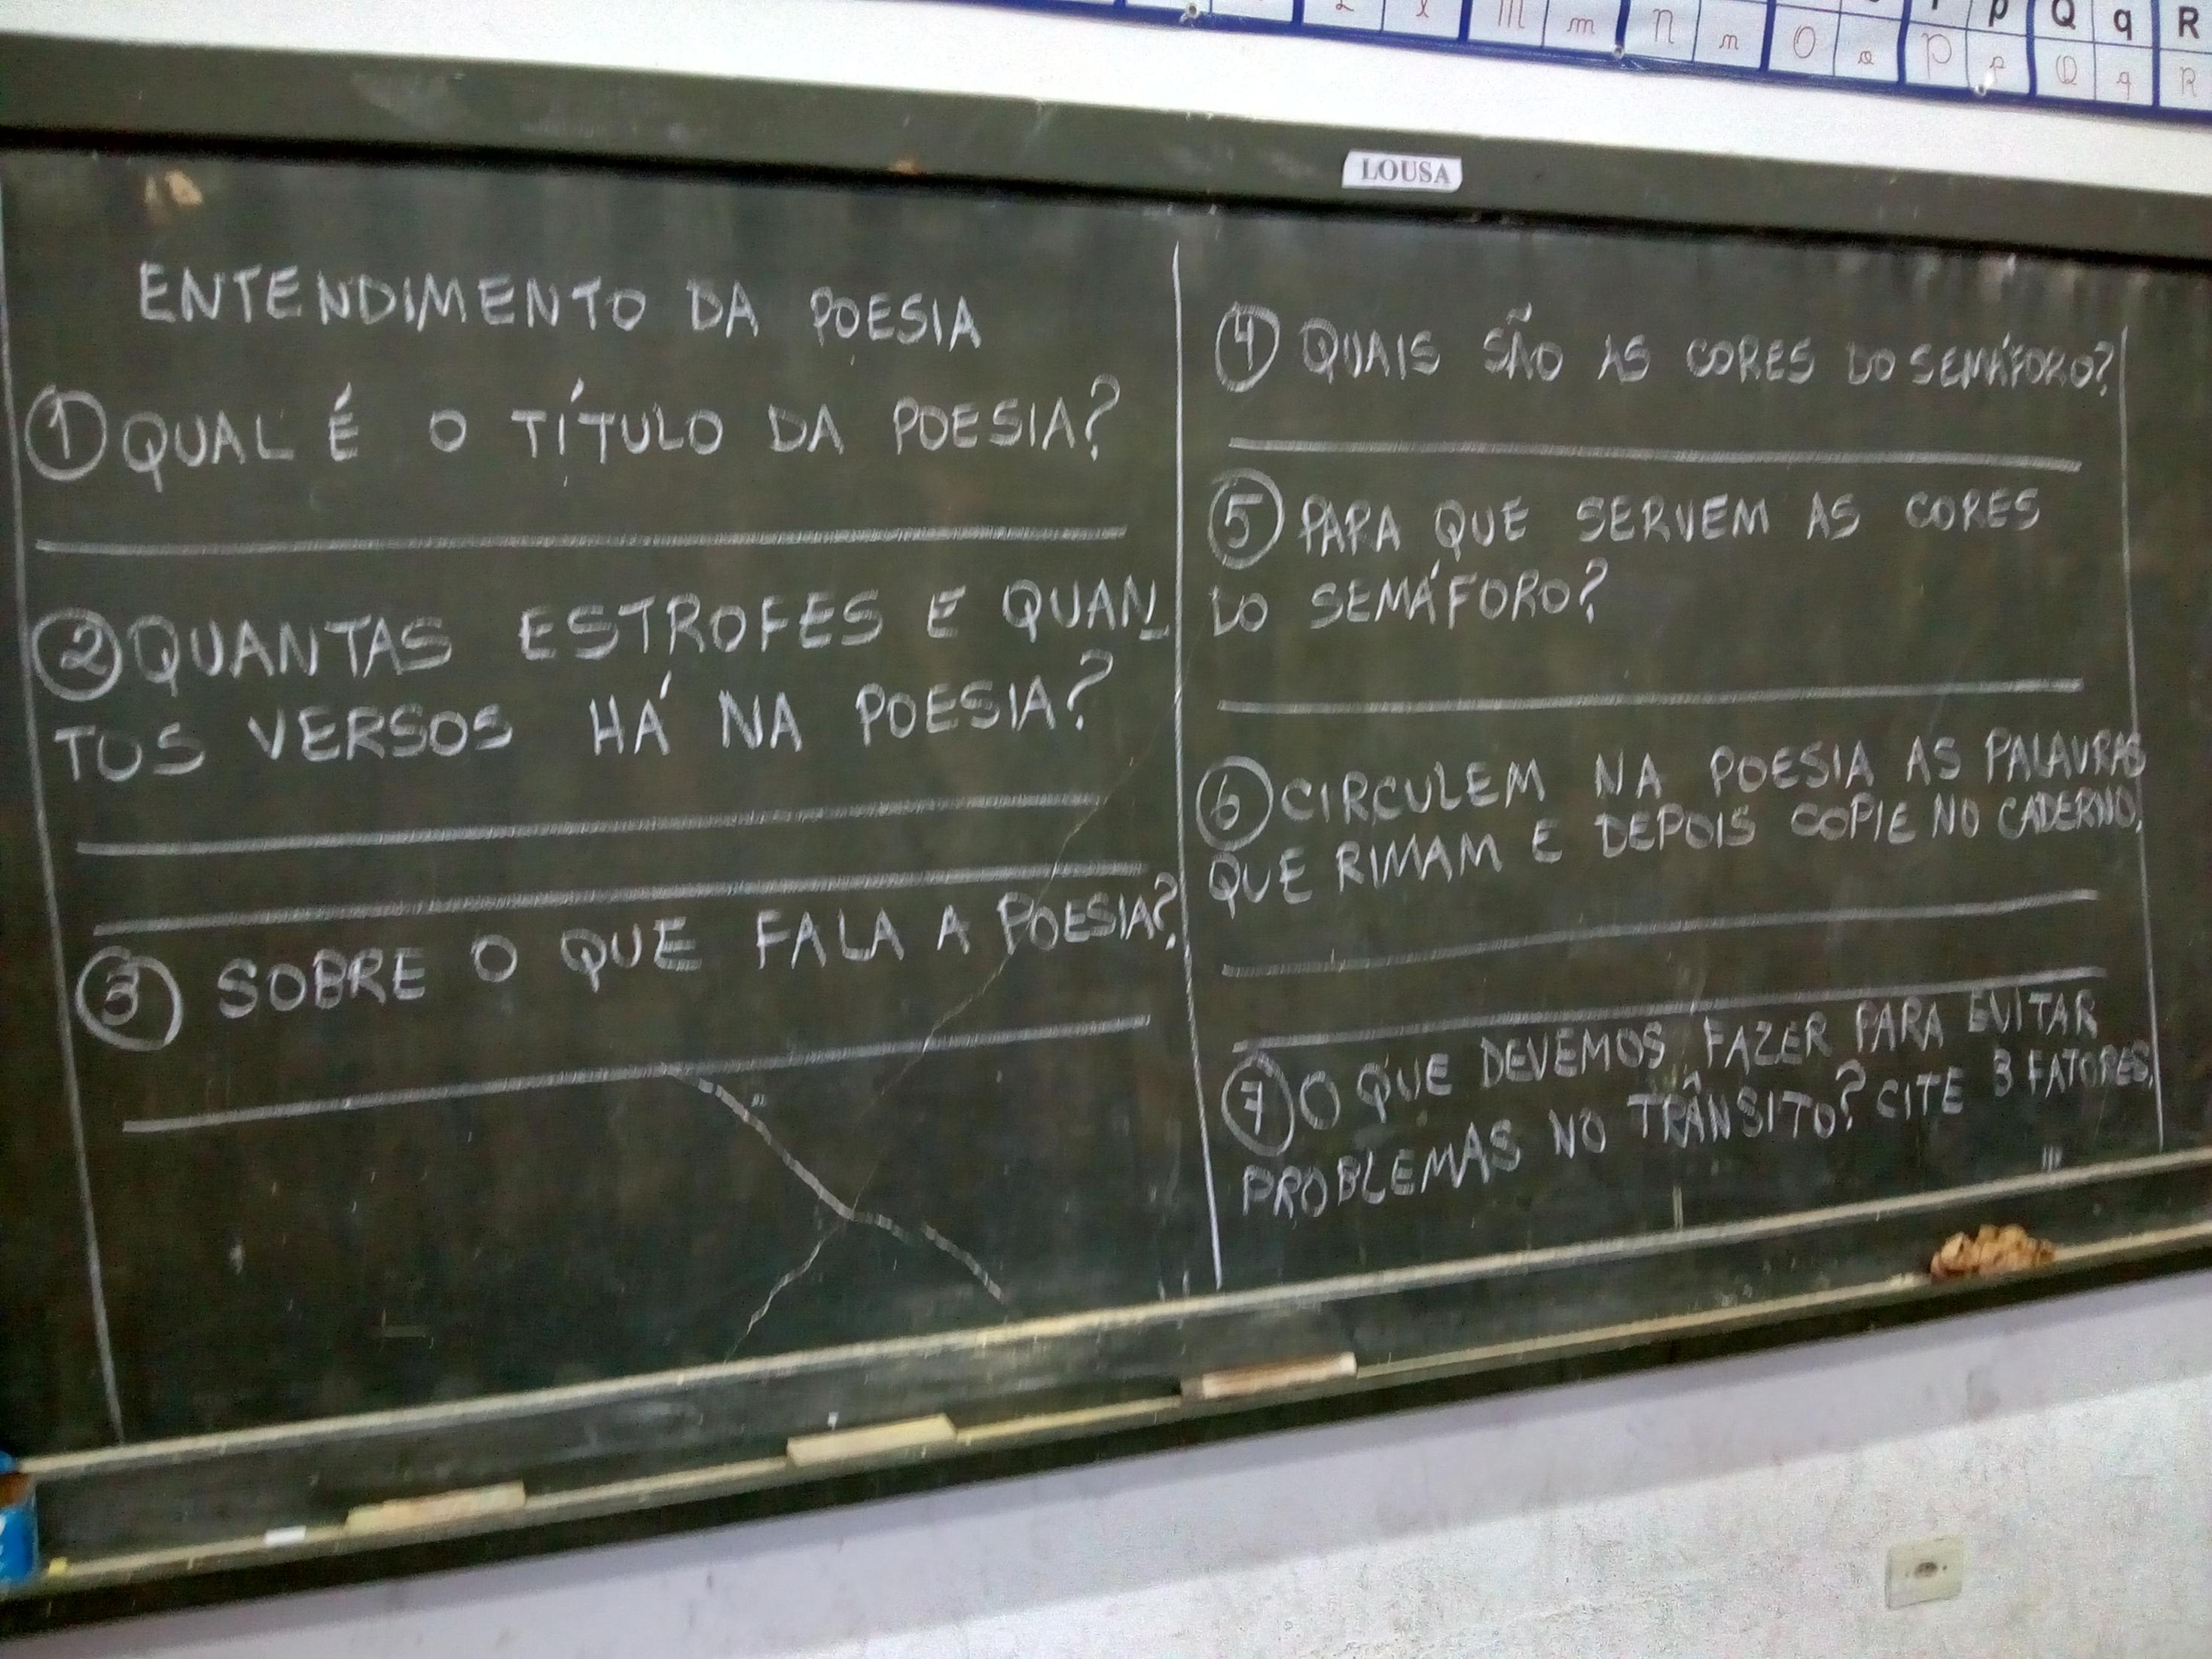 L l M m N n O o P p Q q R
LOUSA
ENTENDIMENTO DA POESIA
① QUAL É O TÍTULO DA POESIA?
② QUANTAS ESTROFES E QUAN
TOS VERSOS HÁ NA POESIA?
③ SOBRE O QUE FALA A POESIA?
④ QUAIS SÃO AS CORES DO SEMÁFORO?
⑤ PARA QUE SERVEM AS CORES
DO SEMÁFORO?
⑥ CIRCULEM NA POESIA AS PALAVRAS
QUE RIMAM E DEPOIS COPIE NO CADERNO.
⑦ O QUE DEVEMOS FAZER PARA EVITAR
PROBLEMAS NO TRÂNSITO? CITE 3 FATORES.